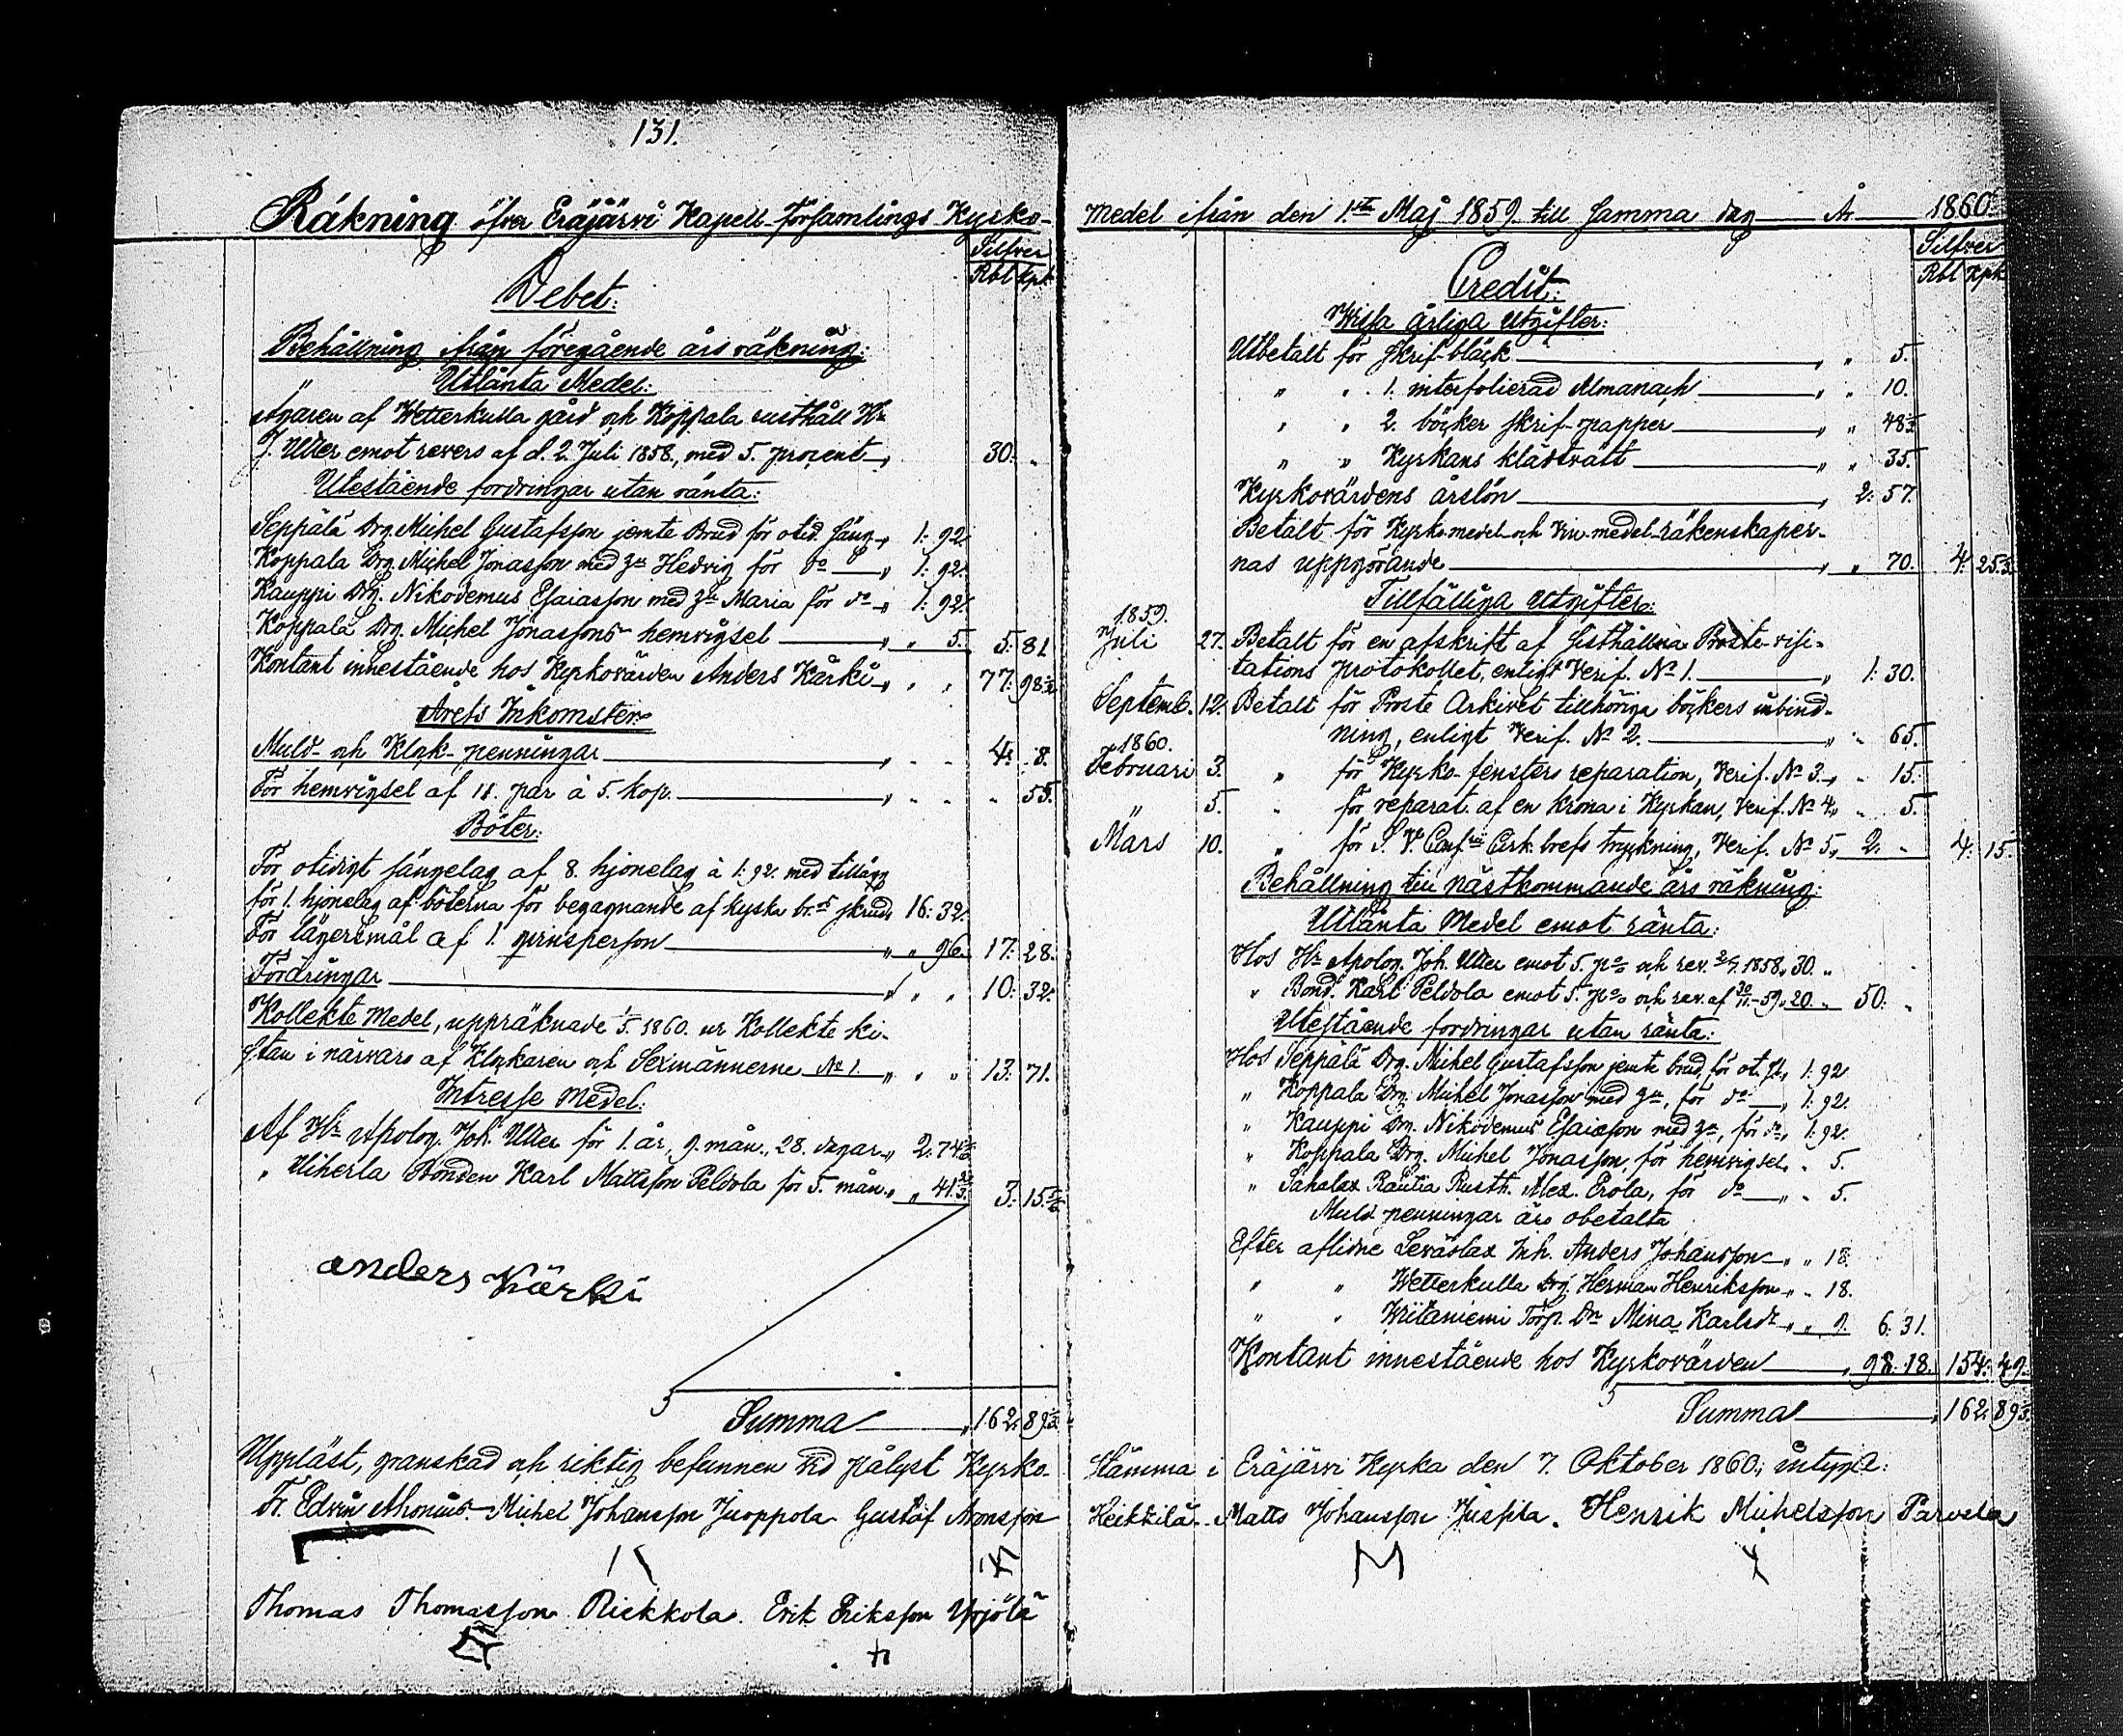 131.
Räkning öfver Eräjärvi Kapell-Församlings Kyrko-
Silfver
Rbl Kpk
Debet:
Behållning ifrån föregående års räkning:
" Utlånta Medel:
Ägaren af Wetterkulla gård och Koppala rusthåll Hr
J. Uller emot revers af d. 2. Juli 1858., med 5. procent 30. "
Utestående fordringar utan ränta:
Seppälä Drg. Michel Gustafsson jemte Brud för otid. säng " 1: 92.
Koppala Drg. Michel Jonasson med hu Hedvig för do " 1: 92.
Kauppi Drg. Nikodemus Esaiasson med hu Maria för do " 1: 92.
Koppala Drg. Michel Jonassons hemvigsel " " 5. 5: 81
Kontant innestående hos Kyrkovärden Anders Kärki " " " 77: 98⅓
Årets Inkomster
Muld- och Klock-penningar " - - 4: 8.
För hemvigsel af 11. par à 5. kop. " - - - 55.
Böter:
För otidigt sängelag af 8. hjonelag à 1: 92. med tillägg
för 1. hjonelag af böterna för begagnande af kyska skrud 16: 32.
För lägersmål af 1. qvinsperson " " 96. 17: 28.
Fordringar " " " 10: 32.
Kollekte Medel, uppräknade 1/5 1860. ur Kollekte ki-
stan i närvaro af Klockaren och Sexmännerne No 1. " " " 13: 71.
Intresse Medel:
Af Hr Apolog. Joh. Uller för 1. år, 9. mån., 28. dagar " 2: 74
" Uiherla Bonden Karl Mattsson Peldola för 5. mån. " " 41 3: 15
anders Kärki
Summa " 162: 89⅓
Uppläst, granskad och riktig befunnen vid pålyst Kyrko-
Fr. Edvin Ahonius. Michel Johansson Juoppola Gustaf Aronsson
Thomas Thomasson Riekkola. Erik Eriksson Yrjölä
Medel ifrån den 1sta Maj 1859. till samma dag År 1860.
Silfver
Rbl Kpk
Credit:
Wissa årliga Utgifter:
Utbetalt för skrif-bläck " " 5.
" " 1. interfolierad Almanach " " 10.
" " 2. böcker skrif-papper " " 48⅓
" " Kyrkans klädtvätt " " 35.
Kyrkovärdens årslön " 2: 57.
Betalt för Kyrko-medel och Vin-medel-räkenskaper-
nas uppgörande " " 70. 4: 25⅓
Tillfälliga Utgifter:
1859.
Juli 27. Betalt för en afskrift af sisthållna Proste-visi-
tations protokollet, enligt Verif. No 1. " 1: 30.
Septemb. 12. Betalt för Proste Arkivet tillhöriga böckers inbind-
ning, enligt Verif. No 2. " " 65.
1860.
Februari 3. " för Kyrko-fensters reparation, Verif. No 3. " " 15.
" 5. " för reparat. af en krona i Kyrkan, Verif. No 4. " " 5.
Mars 10. " för Cirk. brefs tryckning, Verif. No 5. " 2. " 4: 15.
Behållning till nästkommande års räkning:
Utlånta Medel emot ränta:
Hos Hr Apolog. Joh. Uller emot 5. pro och rev. 2/7. 1858. " 30. "
" Bond. Karl Peldola emot 5. pro och rev. af 30/11.-59. " 20. " 50: "
Utestående fordringar utan ränta:
Hos Seppälä Drg. Michel Gustafsson jemte brud, för ot. " 1: 92
" Koppala Drg. Michel Jonasson med hu, för do " 1: 92.
" Kauppi Drg. Nikodemus Esaiasson med hu, för do " 1: 92.
" Koppala Drg. Michel Jonasson, för hemvigsel " " 5.
" Sahalax Rautia Rusth. Alex. Erola, för do " " 5.
Muld-penningar äro obetalta
Efter aflidne Leväslax Inh. Anders Johansson " " 18.
" " Wetterkulla Drg. Herman Henriksson " " 18.
" " Wiitaniemi Torp. Dr Mina Karlsdr " " 9. 6: 31.
Kontant innestående hos Kyrkovärden " 98: 18. 154: 49.
Summa " 162: 89⅓
stämma i Eräjärvi Kyrka den 7. Oktober 1860, intyga:
Heikkilä. Matts Johansson Jussila. Henrik Michelsson Parvela